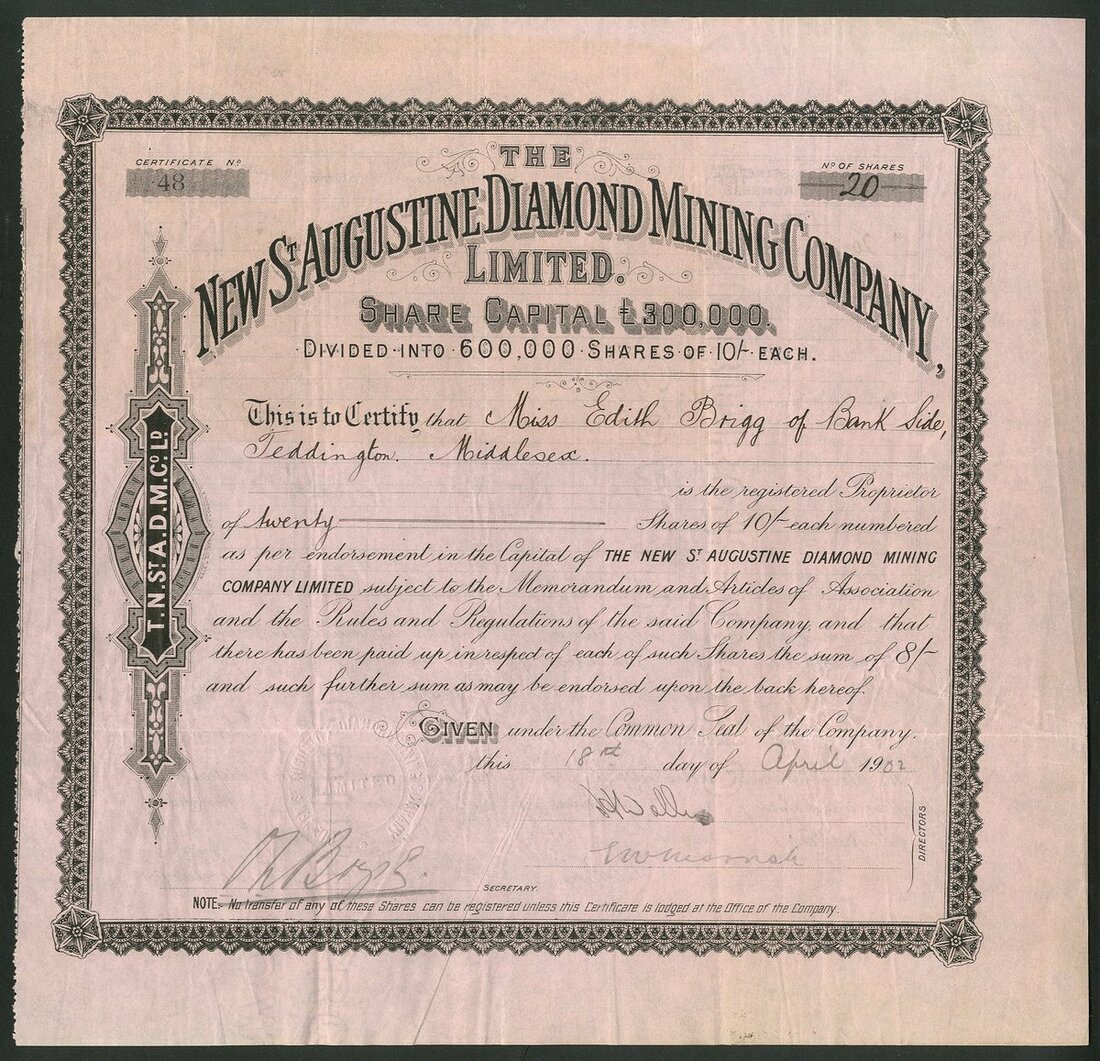 CERTIFICATE Nº
48
Nº OF SHARES
20
THE
NEW ST AUGUSTINE DIAMOND MINING COMPANY,
LIMITED.
SHARE CAPITAL £300,000.
DIVIDED INTO 600,000 SHARES OF 10/- EACH.
T.N.ST.A.D.M.CO. LD
This is to Certify that Miss Edith Brigg of Bank Side,
Teddington. Middlesex.
is the registered Proprietor
of twenty Shares of 10/- each numbered
as per endorsement in the Capital of THE NEW ST AUGUSTINE DIAMOND MINING
COMPANY LIMITED subject to the Memorandum and Articles of Association
and the Rules and Regulations of the said Company, and that
there has been paid up, in respect of each of such Shares the sum of 8/-
and such further sum as may be endorsed upon the back hereof.
GIVEN under the Common Seal of the Company,
this 18th day of April 1902
DIRECTORS
SECRETARY.
NOTE:- No transfer of any of these Shares can be registered unless this Certificate is lodged at the Office of the Company.